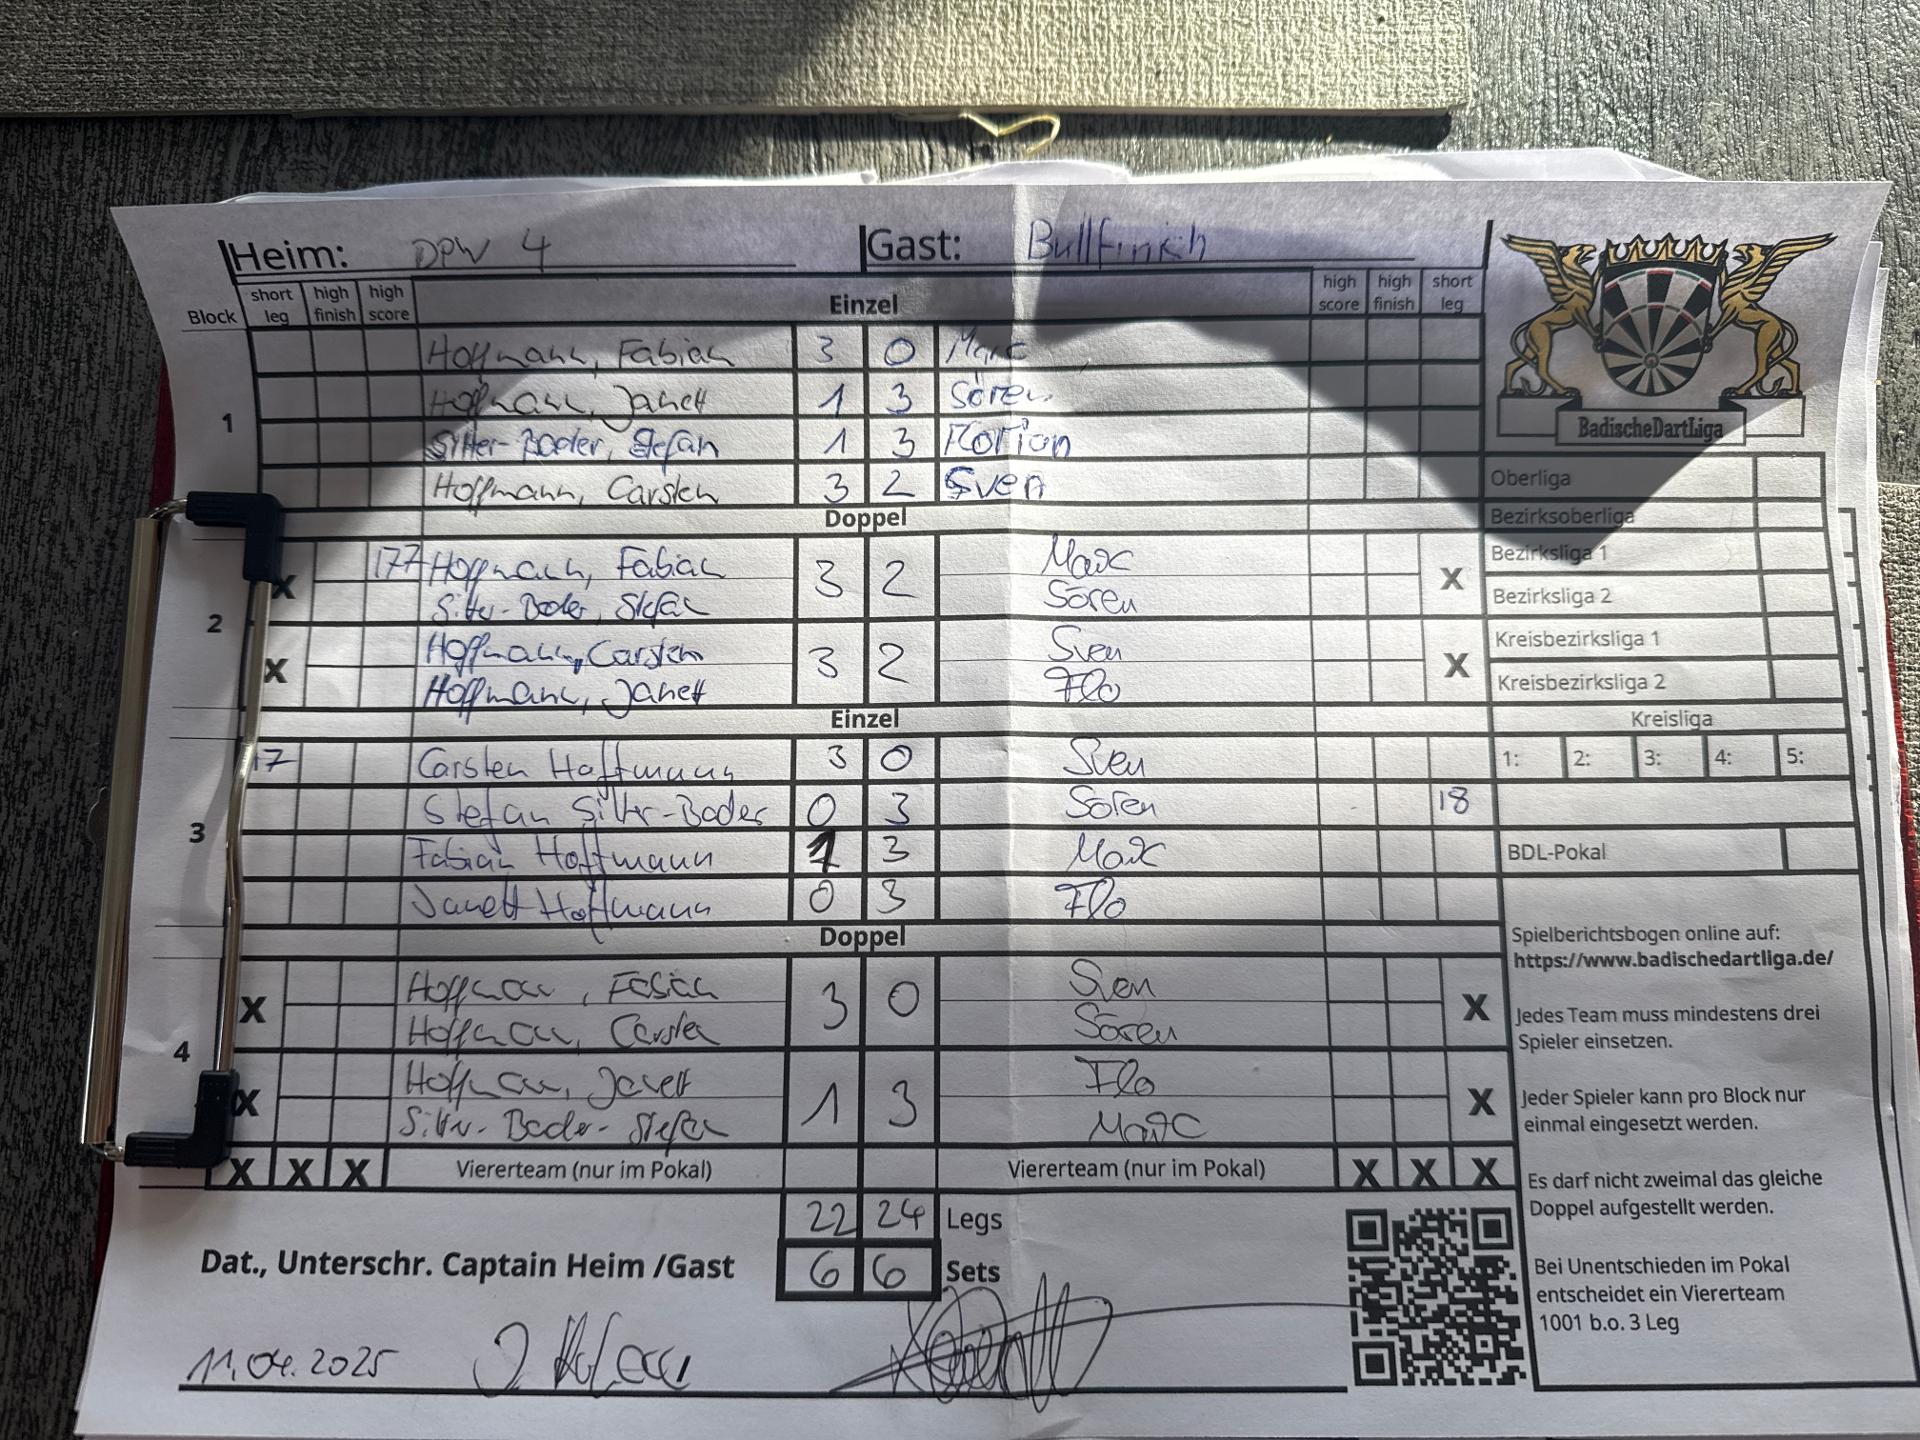 Heim: DPW 4 Gast: Bullfinish
Block short leg high finish high score Einzel high score high finish short leg
1
Hoffmann, Fabian 3 0 Marc
Hoffmann, Janett 1 3 Sören
Sitter-Bader, Stefan 1 3 Florian
Hoffmann, Carsten 3 2 Sven
Doppel
2
X 177 Hoffmann, Fabian 3 2 Marc X
Sitter-Bader, Stefan Sören
X Hoffmann, Carsten 3 2 Sven X
Hoffmann, Janett Flo
Einzel
3
17 Carsten Hoffmann 3 0 Sven
Stefan Sitter-Bader 0 3 Sören 18
Fabian Hoffmann 1 3 Marc
Janett Hoffmann 0 3 Flo
Doppel
4
X Hoffmann, Fabian 3 0 Sven X
Hoffmann, Carsten Sören
X Hoffmann, Janett 1 3 Flo X
Sitter-Bader-Stefan Marc
X X X Viererteam (nur im Pokal) Viererteam (nur im Pokal) X X X
22 24 Legs
6 6 Sets
Dat., Unterschr. Captain Heim /Gast
11.04.2025
BadischeDartLiga
Oberliga
Bezirksoberliga
Bezirksliga 1
Bezirksliga 2
Kreisbezirksliga 1
Kreisbezirksliga 2
Kreisliga
1: 2: 3: 4: 5:
BDL-Pokal
Spielberichtsbogen online auf:
https://www.badischedartliga.de/
Jedes Team muss mindestens drei
Spieler einsetzen.
Jeder Spieler kann pro Block nur
einmal eingesetzt werden.
Es darf nicht zweimal das gleiche
Doppel aufgestellt werden.
Bei Unentschieden im Pokal
entscheidet ein Viererteam
1001 b.o. 3 Leg